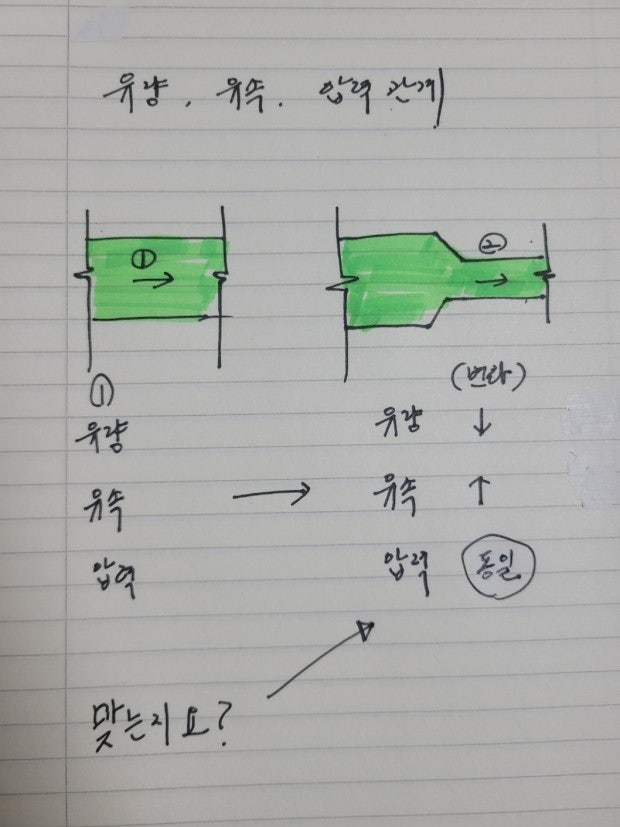 유량, 유속, 압력 관계
① ②
① (변화)
유량 유량 ↓
유속 → 유속 ↑
압력 압력 동일
맞는지요?